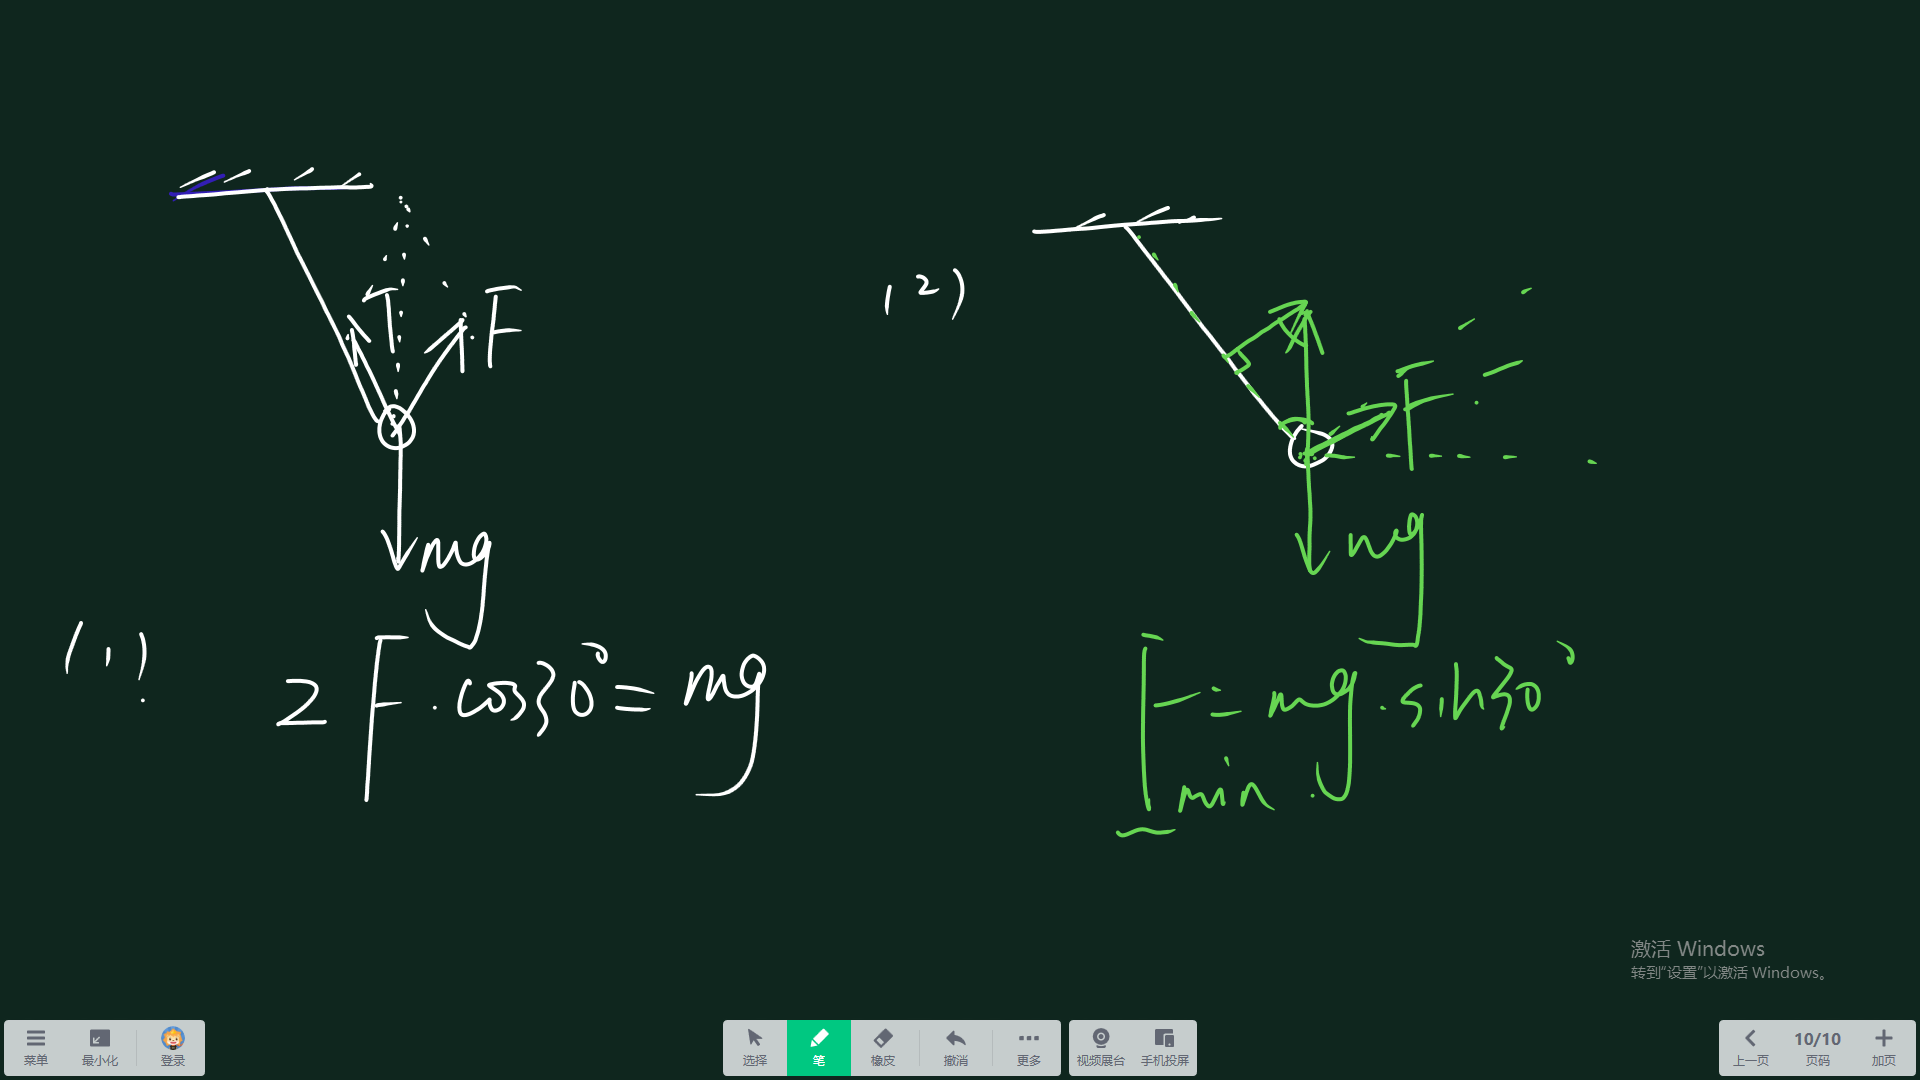 T
F
mg
(1)
2F·cos30°=mg
(2)
F
mg
F=mg·sin30°
min
激活 Windows
转到“设置”以激活 Windows。
菜单
最小化
登录
选择
笔
橡皮
撤消
更多
视频展台
手机投屏
上一页
10/10
页码
加页